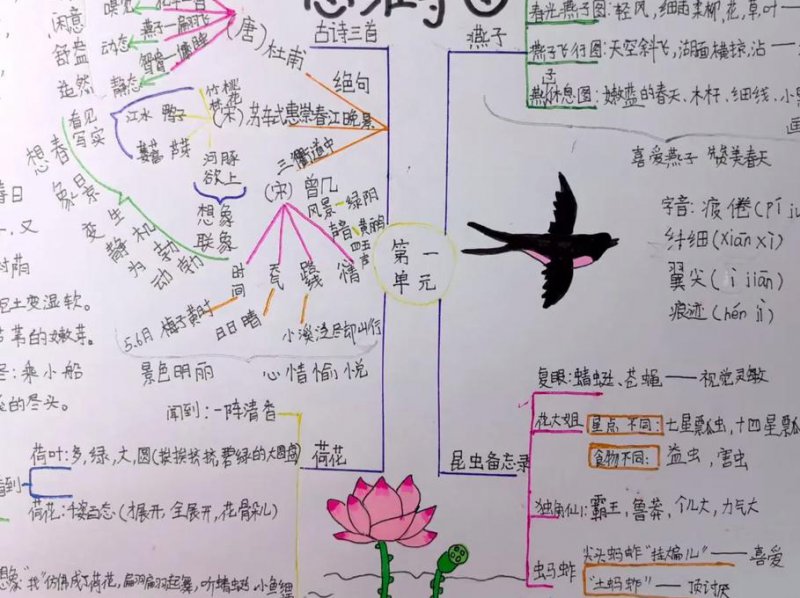 思维导图
古诗三首
燕子
(唐)杜甫
绝句
闲意
舒益
造然
动态
燕子一扁时飞
鸳鸯一慵睡
静态
看见
写实
江水 鸭子
竹 桃
(宋)苏轼 惠崇春江晚景
蒌蒿 芦芽
河豚
欲上
想象
联象
想春
象景
变生
静机
为勃
动勃
三衢道中
(宋)曾几
风景一绿阴
声音一黄鹂
四五声
时间
天气
路线
情
5.6月 梅子黄时
日日晴
小溪泛尽却山行
景色明丽 心情愉悦
春日
又
时荫
泥土变湿软。
芦苇的嫩芽。
乘小船
的尽头。
第一
单元
春光燕子图:轻风,细雨柔柳,花,草,叶一
燕子飞行图:天空斜飞,湖面横掠,沾一
燕子休息图:嫩蓝的春天、木杆、细线、小
喜爱燕子 赞美春天
字音:疲倦(pí ju
纤细(xiān xì)
翼尖(ì jiān)
痕迹(hén jì)
闻到:一阵清香
荷花
荷叶:多,绿,大,圆(挨挨挤挤,碧绿的大圆盘
看到
荷花:千姿百态(才展开,全展开,花骨朵儿)
想象"我"仿佛成了荷花,翩翩起舞,听蜻蜓,小鱼
昆虫备忘录
复眼:蜻蜓、苍蝇——视觉灵敏
花大姐 星点不同:七星瓢虫,十四星瓢
食物不同: 益虫,害虫
独角仙:霸王,鲁莽,个儿大,力气大
蚂蚱 尖头蚂蚱"挂大扁儿"——喜爱
"土蚂蚱"——顶讨厌